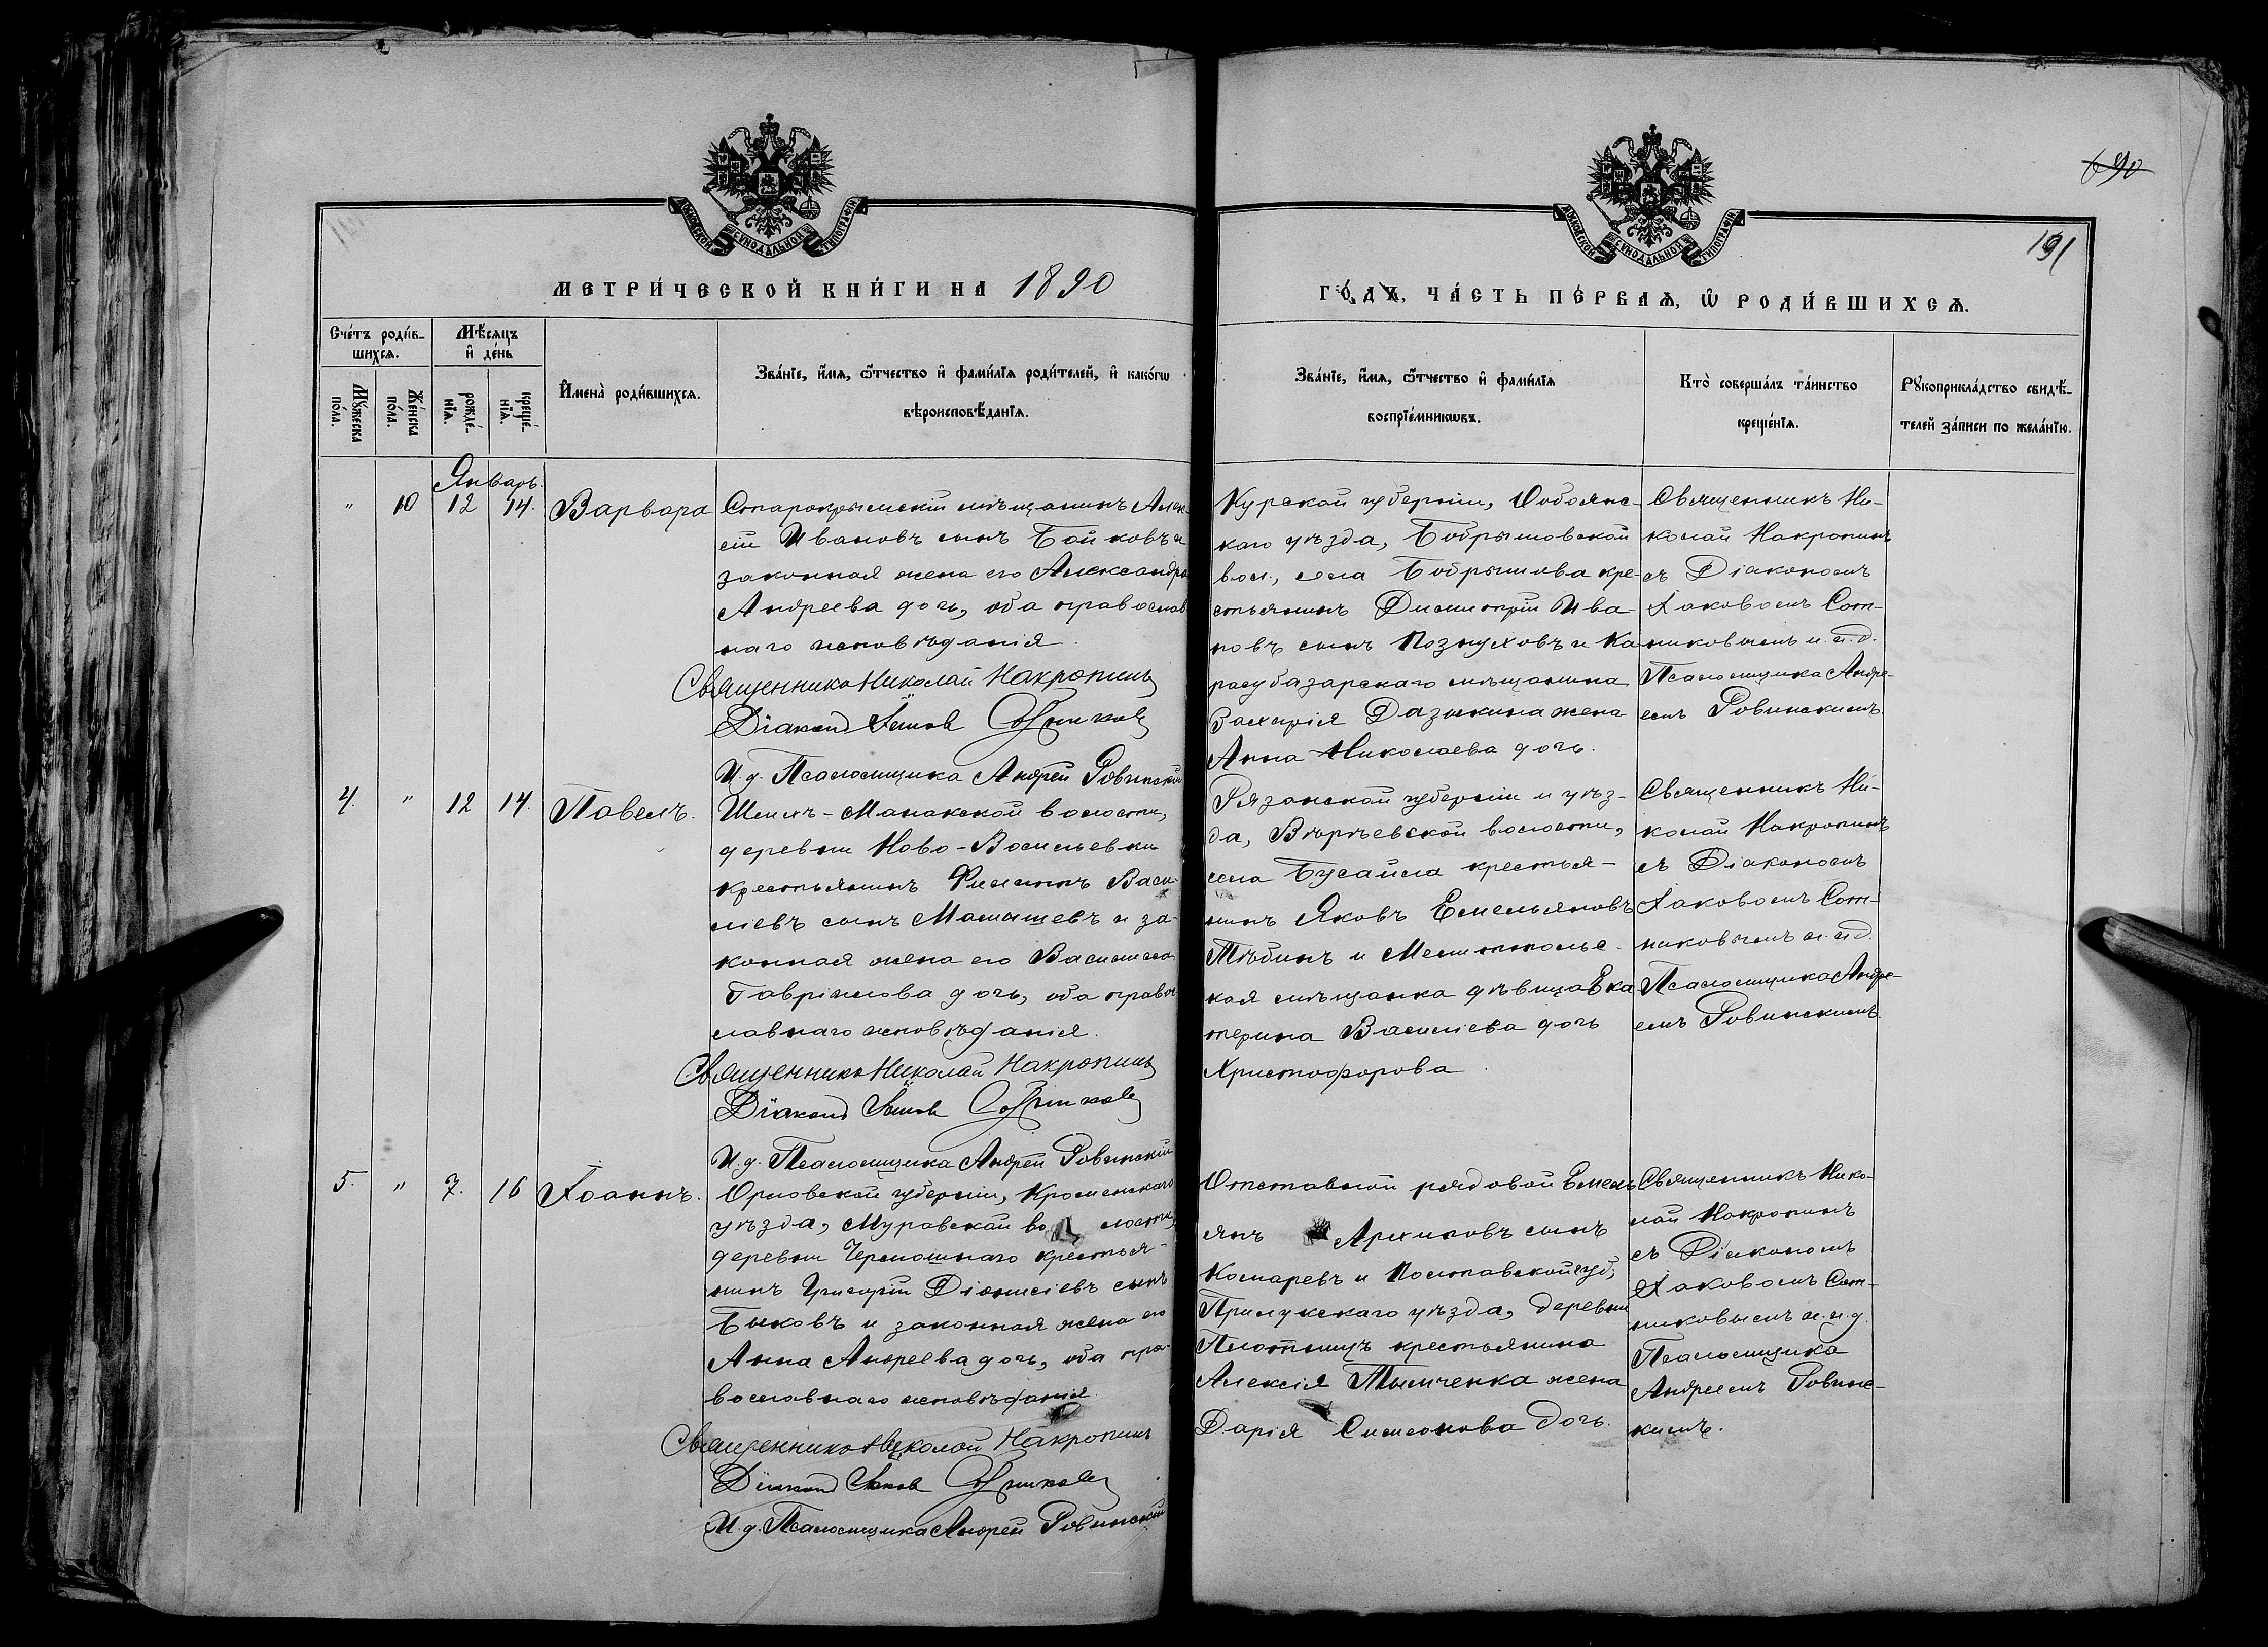 690
191
МОСКОВСКОЙ СУНОДАЛЬНОЙ ТИПОГРАФІИ
МОСКОВСКОЙ СУНОДАЛЬНОЙ ТИПОГРАФІИ
МЕТРИ́ЧЕСКОЙ КНИ́ГИ НА 1890
ГО́ДЪ, ЧА́СТЬ ПЕ́РВАѦ, Ѡ҆ РОДИ́ВШИХСѦ.
Сче́тъ роди́в-
шихсѧ.
Мꙋ́жеска по́ла.
Же́нска по́ла.
Мѣ́сѧцъ
и҆ де́нь
рожде́-
нїѧ.
креще́-
нїѧ.
И҆мена̀ роди́вшихсѧ.
Зва́нїе, и҆́мѧ, ѻ҆́тчество и҆ фами́лїѧ роди́телей, и҆ како́гѡ
вѣроисповѣ́данїѧ.
Зва́нїе, и҆́мѧ, ѻ҆́тчество и҆ фами́лїѧ
воспрїе́мникѡвъ.
Кто̀ соверша́лъ та́инство
креще́нїѧ.
Рꙋкоприкла́дство свидѣ́-
телей за́писи по жела́нїю.
Январь.
" 10 12 14. Варвара
Старокрымскій мѣщанинъ Алек-
сій Ивановъ сынъ Бойковъ и
законная жена его Александра
Андреева дочь, оба православ
наго исповѣданія.
Священникъ Николай Накропинъ
Діаконъ Іаковъ Сотниковъ
И. д. Псаломщика Андрей Ровинскій
Курской губерніи, Обоянс-
каго уѣзда, Бобрышовской
вол., села Бобрышова кре-
стьянинъ Димитрій Ива-
новъ сынъ Познуховъ и Ка
расубазарскаго мѣщанина
Захарія Дазыкина жена
Анна Николаева дочь.
Священникъ Ни-
колай Накропинъ
съ Діакономъ
Іаковомъ Сот-
никовымъ и. и. д.
Псаломщика Андре-
емъ Ровинскимъ.
4. " 12 14. Павелъ.
Шеихъ-Манакской волости,
деревни Ново-Васильевки
крестьянинъ Филиппъ Васи-
ліевъ сынъ Мамашевъ и за-
конная жена его Василиса
Гавріилова дочь, оба право-
славнаго исповѣданія.
Священникъ Николай Накропинъ
Діаконъ Іаковъ Сотниковъ
И. д. Псаломщика Андрей Ровинскій
Рязанской губерніи и уѣз-
да, Вырѣевской волости,
села Бусаила крестья-
нинъ Яковъ Емельяновъ
Тѣбинъ и Мелитополье-
кая мѣщанка дѣвица Ека
терина Василіева дочь
Христофорова
Священникъ Ни-
колай Накропинъ
съ Діакономъ
Іаковомъ Сот-
никовымъ и. и. д.
Псаломщика Андре-
емъ Ровинскимъ.
5. " 7. 16 Іоаннъ.
Орловской губерніи, Кромскаго
уѣзда, Муравской во лости,
деревни Чермошнаго крестья-
нинъ Григорій Діонисіевъ сынъ
Быковъ и законная жена его
Анна Андреева дочь, оба пра-
вославнаго исповѣданія.
Священникъ Николай Накропинъ
Діаконъ Іаковъ Сотниковъ
И. д. Псаломщика Андрей Ровинскій
Отставной рядовой Емель
янъ Архиповъ сынъ
Комаревъ и Полтавской губ,
Прилукскаго уѣзда, деревни
Плотницъ крестьянина
Алексія Тымченка жена
Дарія Симеонова дочь.
Священникъ Нико-
лай Накропинъ
съ Діакономъ
Іаковомъ Сот-
никовымъ и. и. д.
Псаломщика
Андреемъ Ровинс-
кимъ.